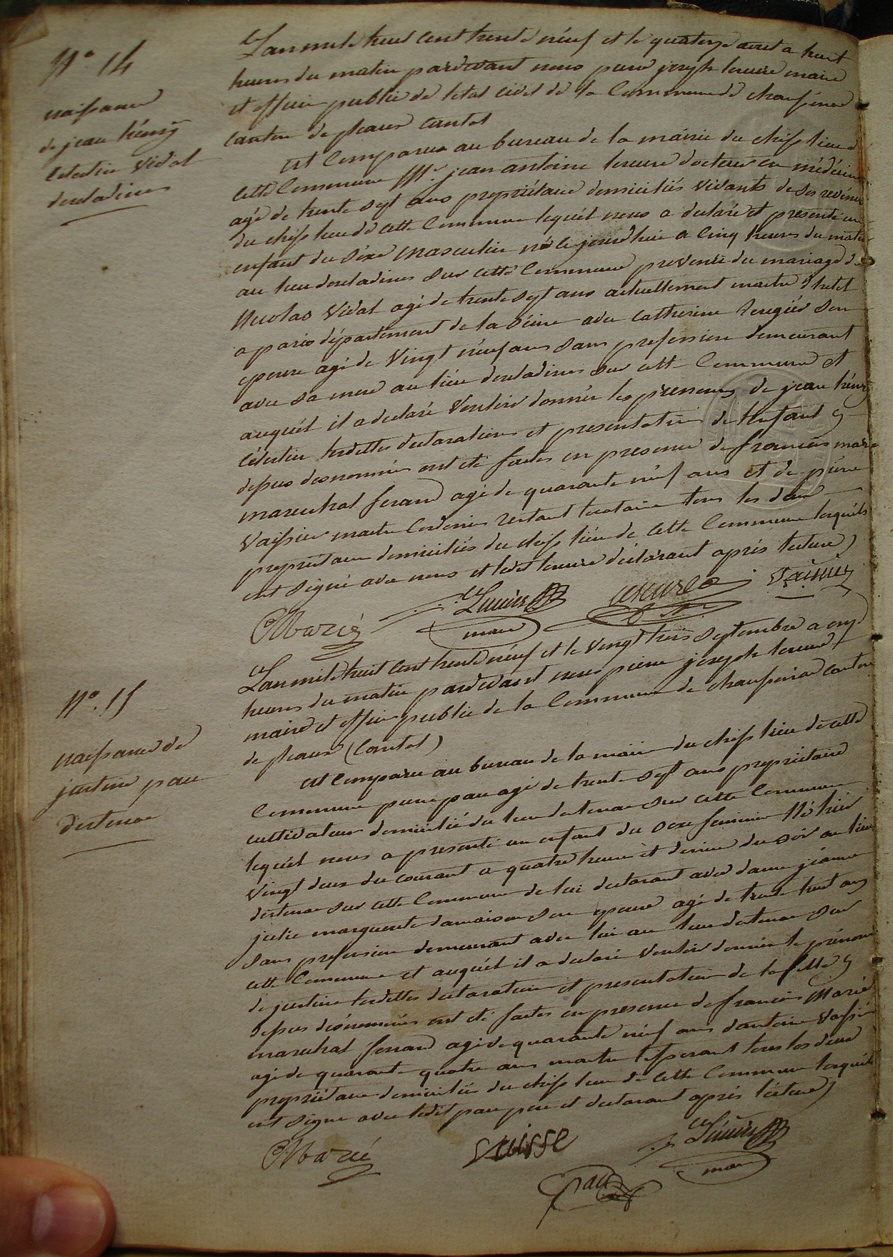 N° 14
naissance
de jean henry
celestin Vidal
L'an mil huit cent trente neuf et le quatorze aout a huit
heures du matin pardevant nous pierre joseph maire
et officier public de l'etat civil de la Commune de
canton de pleaux cantal
est Comparu au bureau de la mairie du chef lieu de
cette Commune Mr jean antoine docteur en médecine
agé de trente sept ans propriétaire domicilié vivants de ses revenus
du chef lieu de cette Commune lequel nous a declaré et presenté un
enfant du séxe masculin né ce jourd'hui a cinq heures du matin
au lieu sur cette Commune provenu du mariage de
Nicolas Vidal agé de trente sept ans actuellement maitre d'hotel
a paris département de la Seine avec Catherine son
epouse agé de Vingt neuf ans sans profession demeurant
avec sa mere au lieu sur cette Commune et
auquel il a declaré Vouloir donner les prenoms de jean henry
Célestin lesdittes declaration et presentation de l'enfant
depus ont eté faites en presence de francois marie
marechal ferand agé de quarante neuf ans et de pierre
Vaissier maitre tous les deux
propriétaires domiciliés du chef lieu de cette Commune lesquels
ont signé avec nous et ledit declarant après lecture
Marié
maire
N° 15
naissance de
justine pau
destenac
L'an mil huit cent trente neuf et le vingt trois Septembre a onze
heures du matin pardevant nous pierre joseph
maire et officier public de la Commune de canton
de pleaux (Cantal)
est Comparu au bureau de la mairie du chef lieu de cette
Commune pierre pau agé de trente sept ans propriétaire
cultivateur domicilié du lieu destenac sur cette Commune
lequel nous a presenté un enfant du sexe feminin Né hier
Vingt deux du courant a quatre heures et demie du soir au lieu
destenac sur cette Commune de lui declarant avec dame jeanne
julie marguerite son epouse agé de trente huit ans
sans profession demeurant avec lui au lieu destenac sur
cette Commune et auquel il a declaré Vouloir donner le prénom
de justine lesdittes declaration et presentation de la fille
depus ont eté faites en presence de francois Marié
marechal ferrand agé de quarante neuf ans d'antoine Vaissié
agé de quarante quatre ans maitre tous les deux
propriétaire domicilié du chef lieu de cette Commune lesquels
ont signé avec ledit pau pere et declarant après lecture
Marié
Vaisse
maire
pau